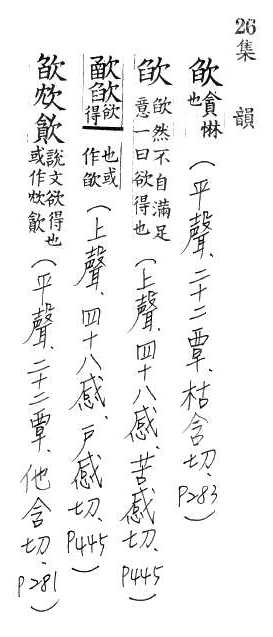 26 集韻
欿 貪惏也(平聲、二十二覃、枯含切、P283)
欿 欿然不自滿足意一曰欲得也(上聲、四十八感、苦感切、P445)
欿 欲得也或作欿(上聲、四十八感、戶感切、P445)
欿 說文欲得也或作(平聲、二十二覃、他含切、P281)